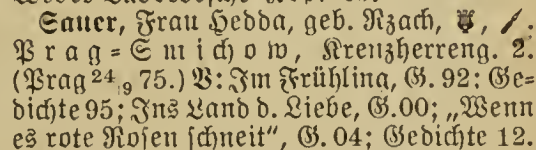 Sauer, Frau Hedda, geb. Rzach,
Prag=Smichow, Kreuzherreng. 2.
(Prag 24/9 75.) V: Im Frühling, G. 92; Ge-
dichte 95; Ins Land d. Liebe, G. 00; „Wenn
es rote Rosen schneit“, G. 04; Gedichte 12.